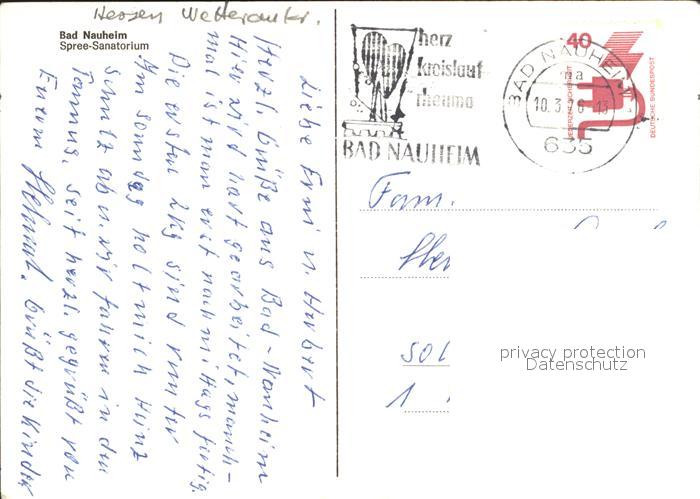 Hessen Wetteraukr.
Bad Nauheim
Spree-Sanatorium
Liebe Erni u. Herbert
Herzl. Grüße aus Bad-Nauheim
Hier wird hart gearbeitet, manch-
mal ist man erst nachmittags fertig.
Die ersten 2kg sind runter
Am Sonntag holt mich Heinz
Schulz ab u. wir fahren in den
Taunus. Seit herzl. gegrüßt von
Eurem Helmut. Grüßt die Kinder
herz
kreislauf
rheuma
BAD NAUHEIM
BAD NAUHEIM
ma
10.3.76-13
635
40
JEDERZEIT SICHERHEIT
DEUTSCHE BUNDESPOST
Fam.
SOL
1
privacy protection
Datenschutz